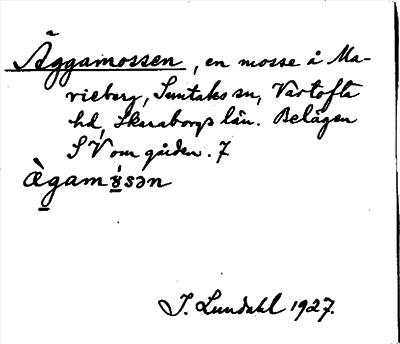 Äggamossen, en mosse å Ma-
rieberg, Suntaks sn, Vartofta
hd, Skaraborgs län. Belägen
SV om gården. 7
æ̀gam
J. Lundahl 1927.